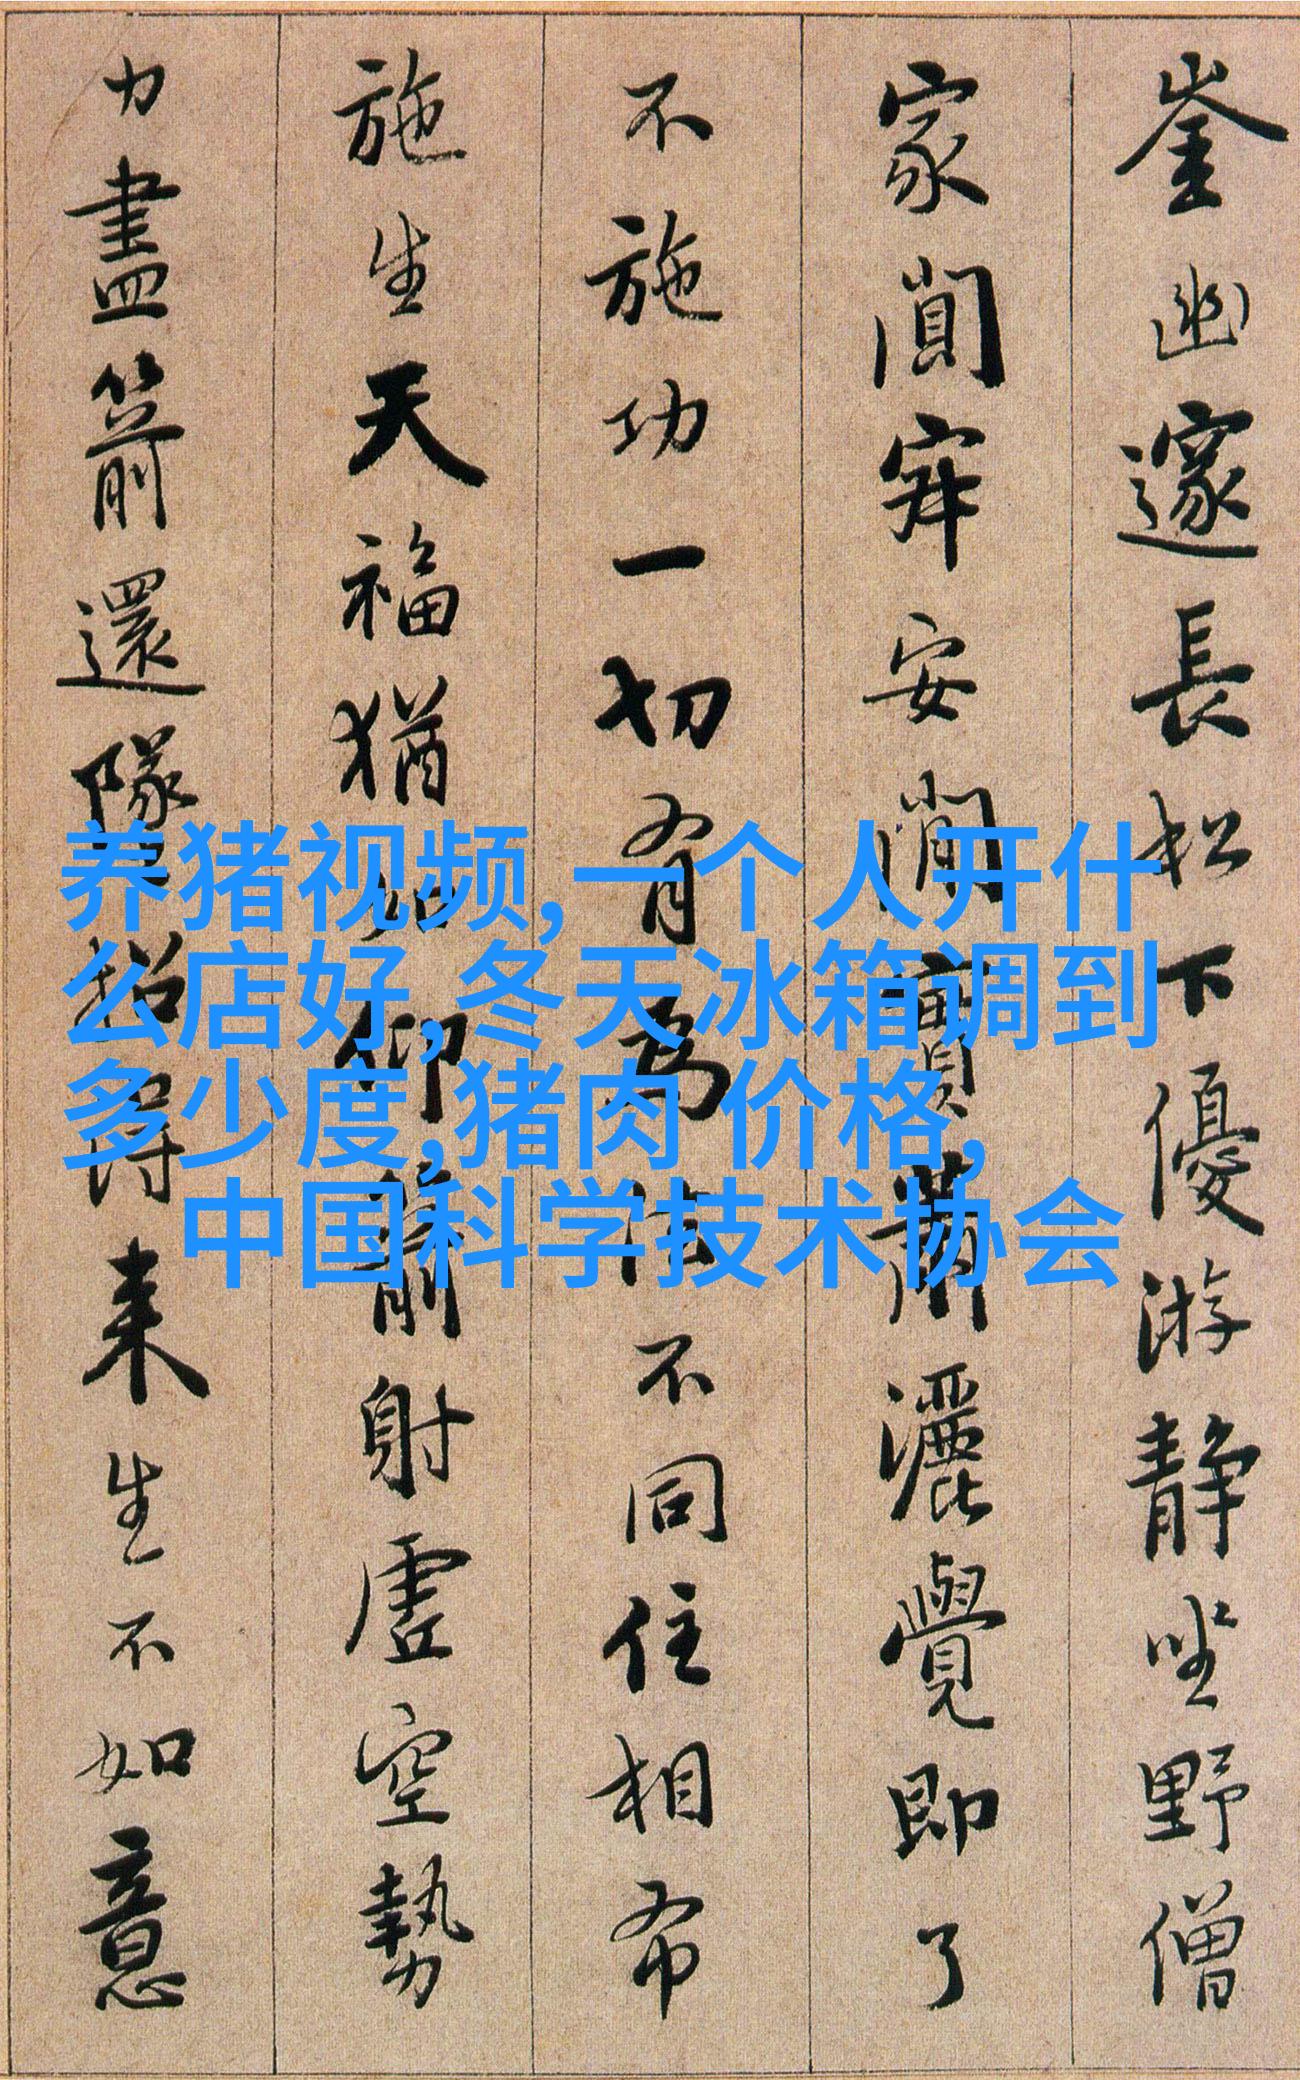 崟幽邃長松下優游靜坐野僧
家闃寂安閒實蕭灑覺即了
不施功一切有為法不同住相布
施生天福猶如仰箭射虛空勢
力盡箭還墜招得來生不如意
养猪视频,一个人开什
么店好,冬天冰箱调到
多少度,猪肉 价格,
中国科学技术协会